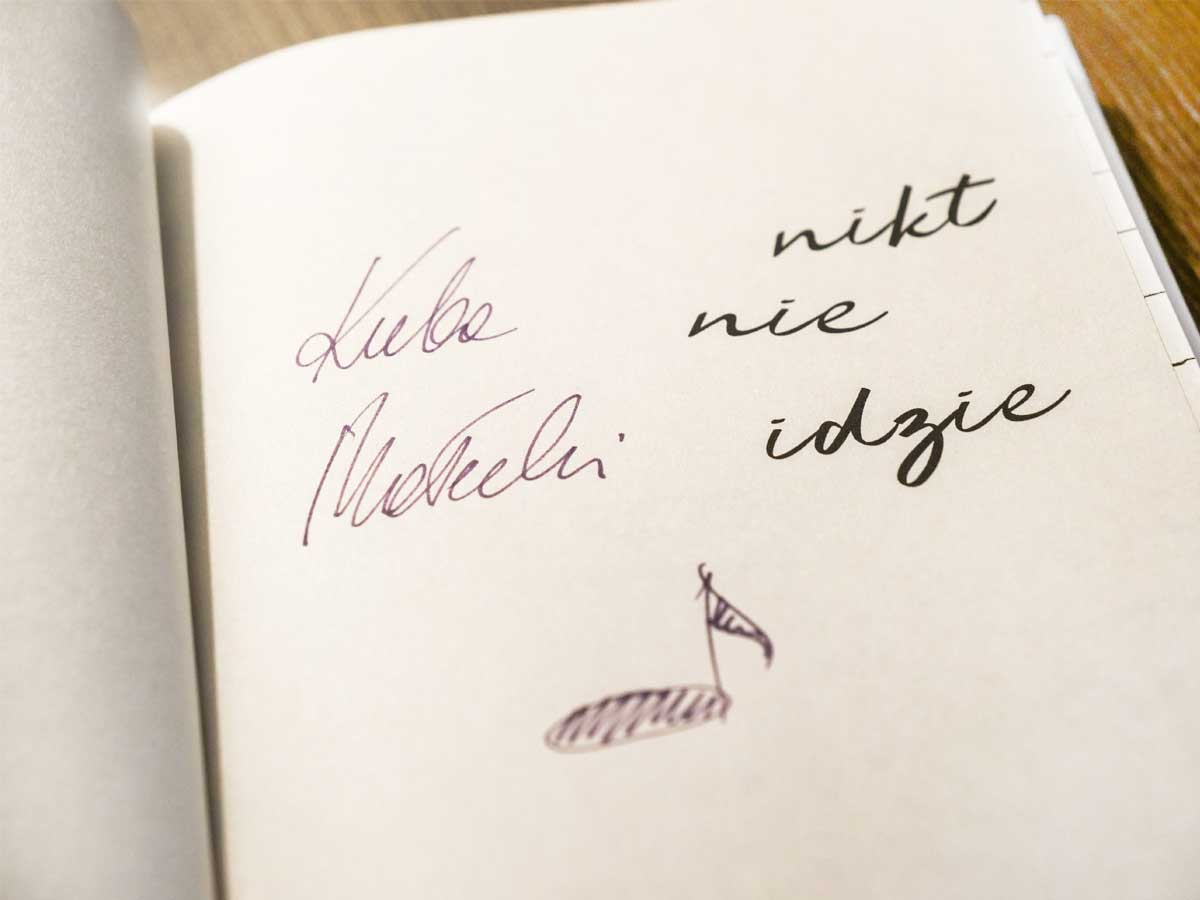 nikt
nie
idzie
Kuba
Małecki